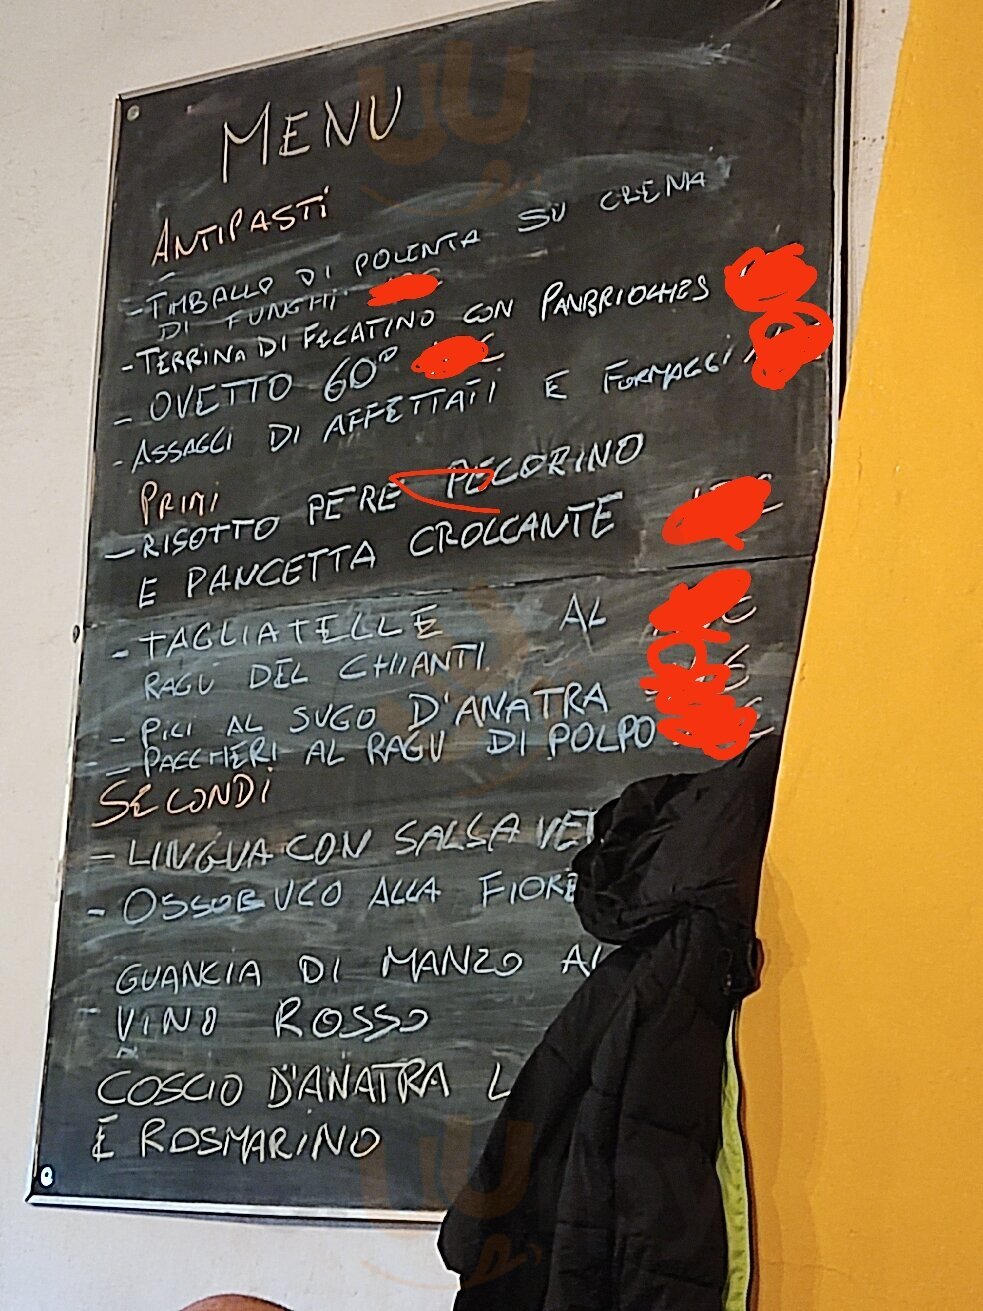 MENU
ANTIPASTI
- TIMBALLO DI POLENTA SU CREMA
DI FUNGHI
- TERRINA DI FEGATINO CON PANBRIOCHES
- OVETTO 60° €
- ASSAGGI DI AFFETTATI E FORMAGGI
PRIMI
- RISOTTO PERE PECORINO
E PANCETTA CROCCANTE €
- TAGLIATELLE AL €
RAGÙ DEL CHIANTI
- PICI AL SUGO D'ANATRA €
- PACCHERI AL RAGÙ DI POLPO €
SECONDI
- LINGUA CON SALSA
- OSSOBUCO ALLA
GUANCIA DI MANZO AL
- VINO ROSSO
COSCIO D'ANATRA
E ROSMARINO